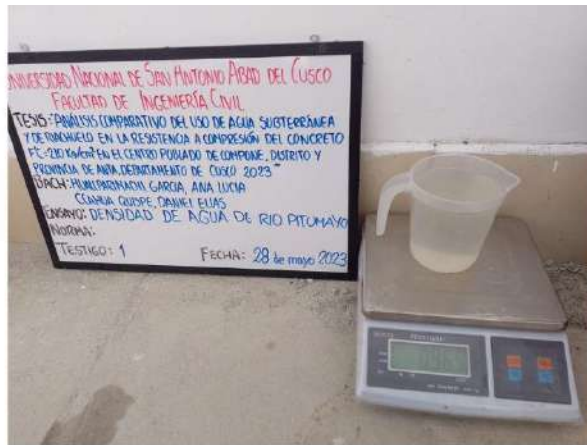 UNIVERSIDAD NACIONAL DE SAN ANTONIO ABAD DEL CUSCO
FACULTAD DE INGENIERÍA CIVIL
TESIS: "ANÁLISIS COMPARATIVO DEL USO DE AGUA SUBTERRÁNEA
Y DE RIACHUELO EN LA RESISTENCIA A COMPRESIÓN DEL CONCRETO
F'C=210 KG/CM² EN EL CENTRO POBLADO DE COMPONE, DISTRITO Y
PROVINCIA DE ANTA, DEPARTAMENTO DE CUSCO 2023"
BACH: HUALLPARIMACHI GARCIA, ANA LUCIA
CCAHUA QUISPE, DANIEL ELIAS
ENSAYO: DENSIDAD DE AGUA DE RIO PITUMAYO
NORMA:
TESTIGO: 1 FECHA: 28 de mayo 2023